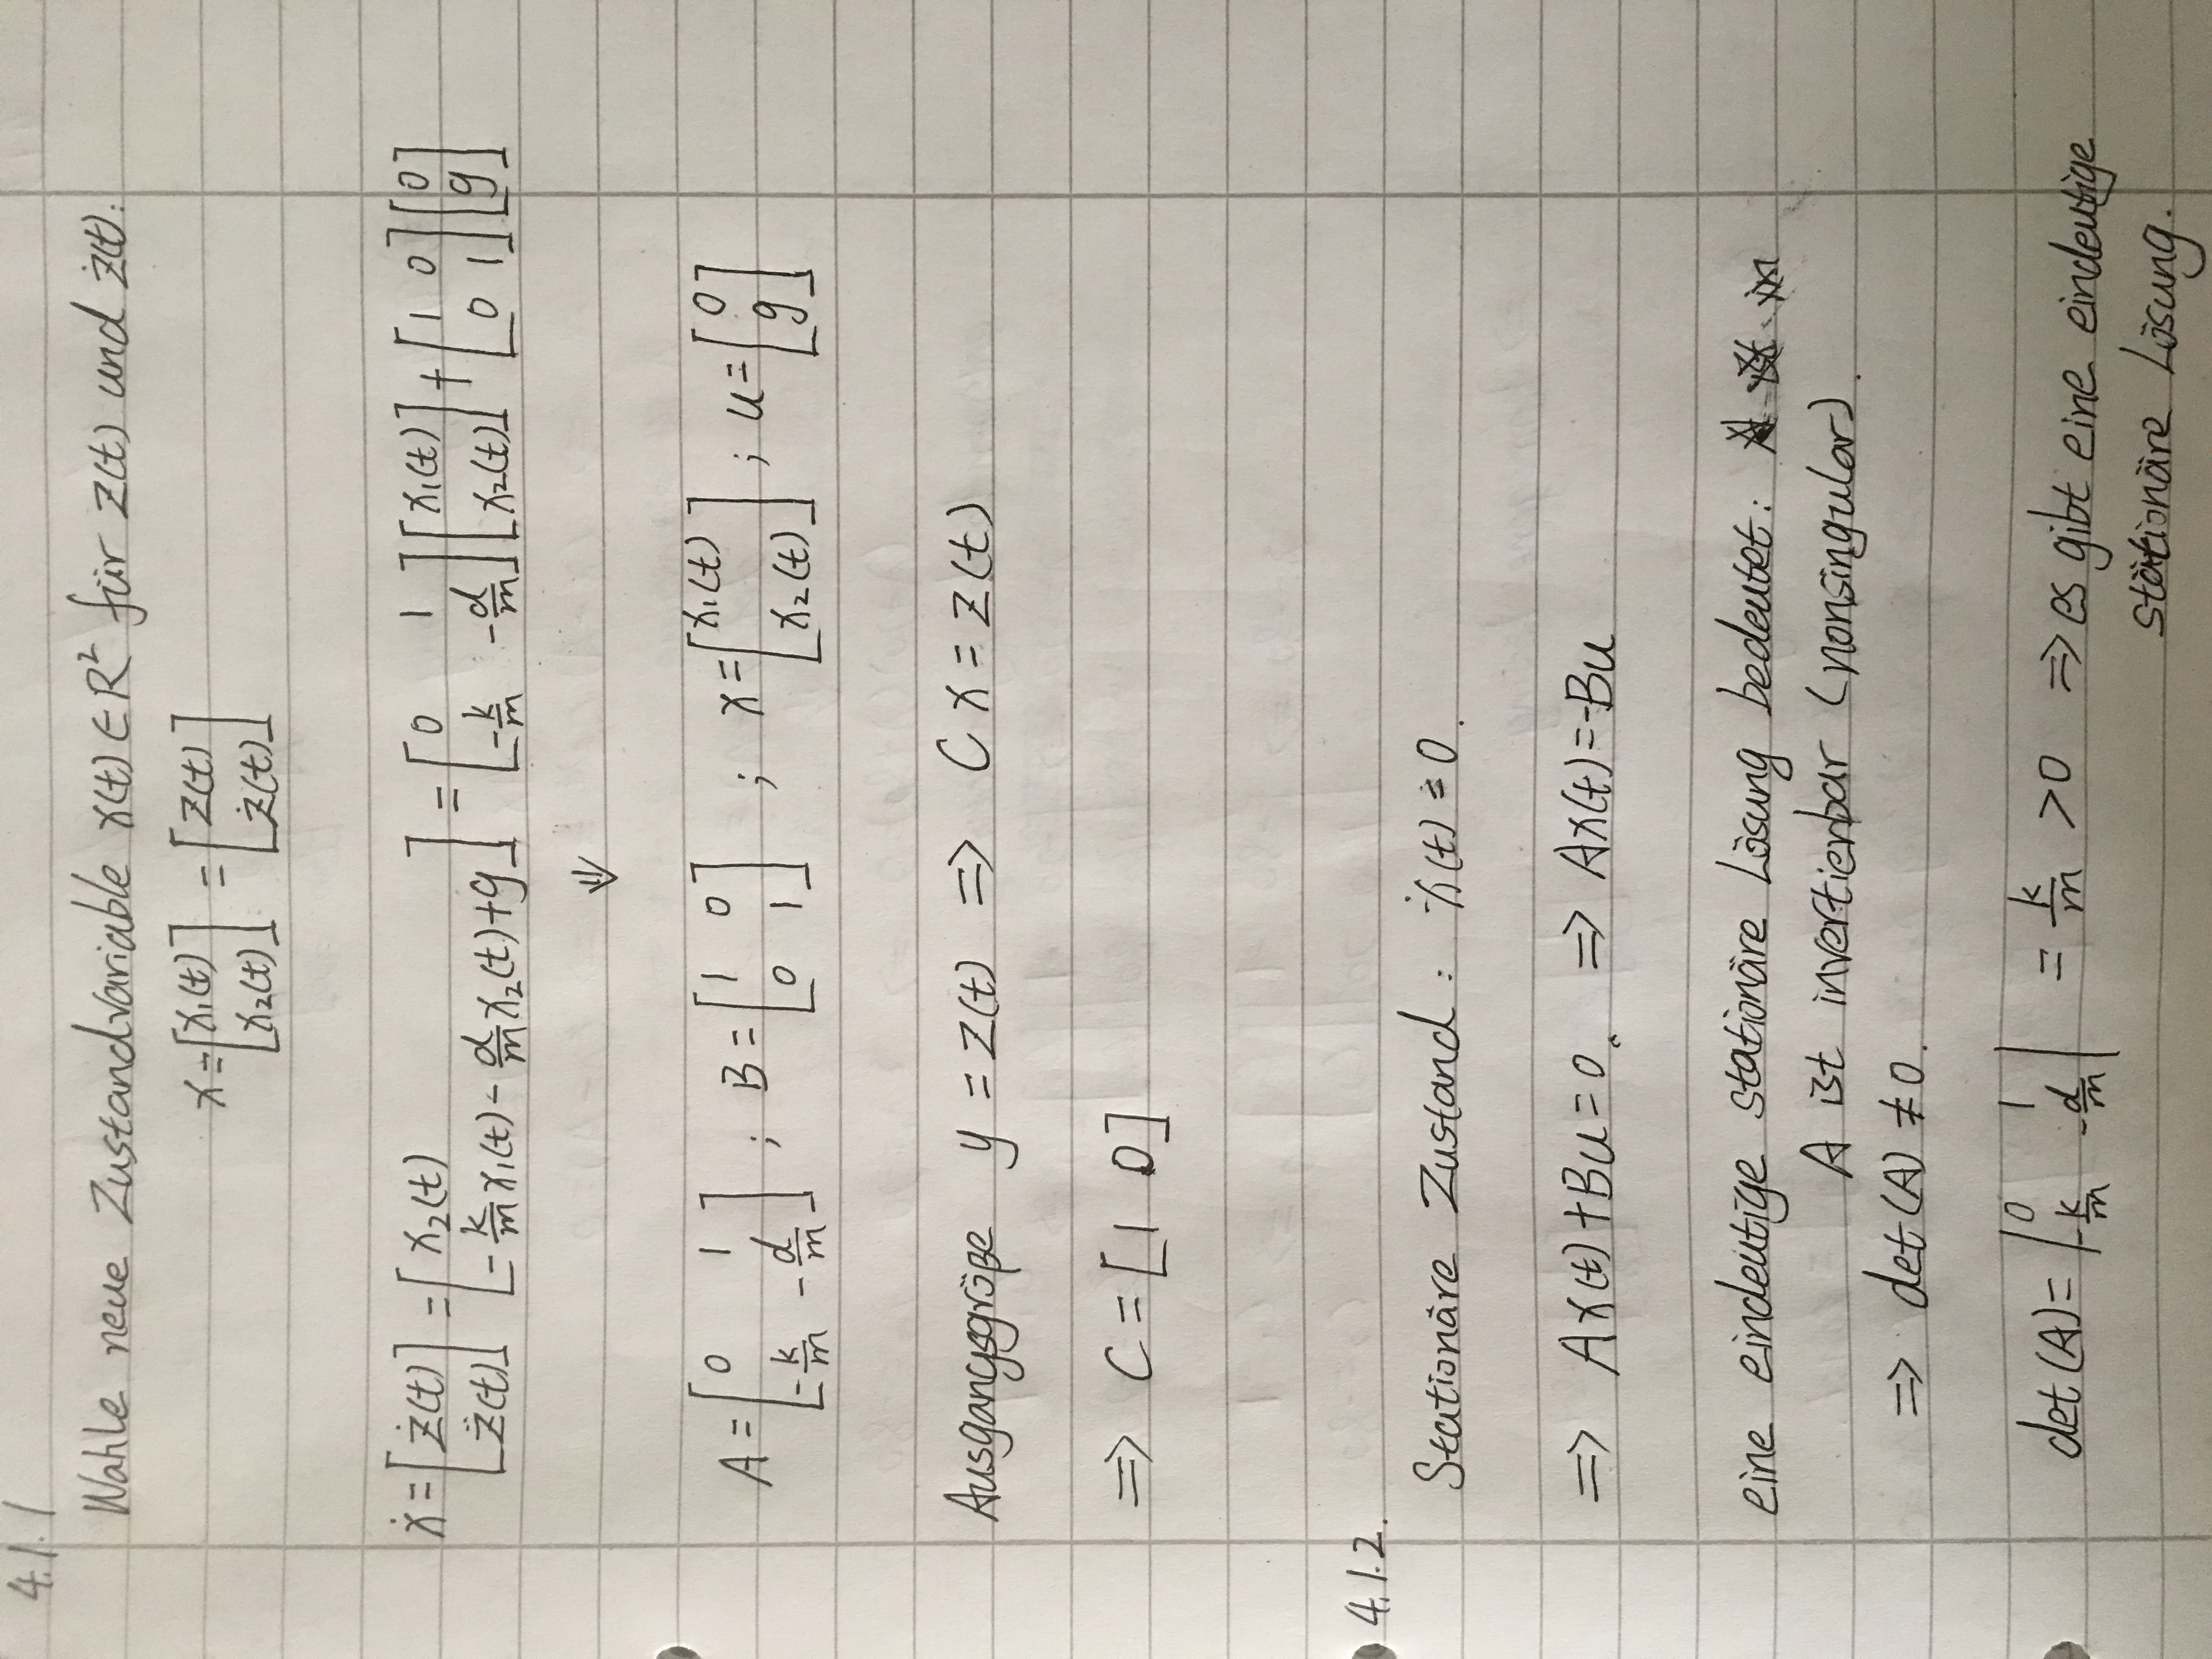 4.1.1
Wahle neue Zustandvariable x(t) ∈ R² für z(t) und ż(t):
x = [x₁(t) x₂(t)] = [z(t) ż(t)]
ẋ = [ż(t) z̈(t)] = [x₂(t) -k/m x₁(t) - d/m x₂(t) + g] = [0 1 -k/m -d/m] [x₁(t) x₂(t)] + [1 0 0 1] [0 g]
⇓
A = [0 1 -k/m -d/m] ; B = [1 0 0 1] ; x = [x₁(t) x₂(t)] ; u = [0 g]
Ausgangsgröße y = z(t) ⇒ C x = z(t)
⇒ C = [1 0]
4.1.2.
Stationäre Zustand : ẋ(t) = 0.
⇒ Ax(t) + Bu = 0. ⇒ Ax(t) = -Bu
eine eindeutige stationäre Lösung bedeutet:
A ist invertierbar (nonsingular).
⇒ det(A) ≠ 0.
det(A) = |0 1 -k/m -d/m| = k/m > 0 ⇒ es gibt eine eindeutige
stätionäre Lösung.